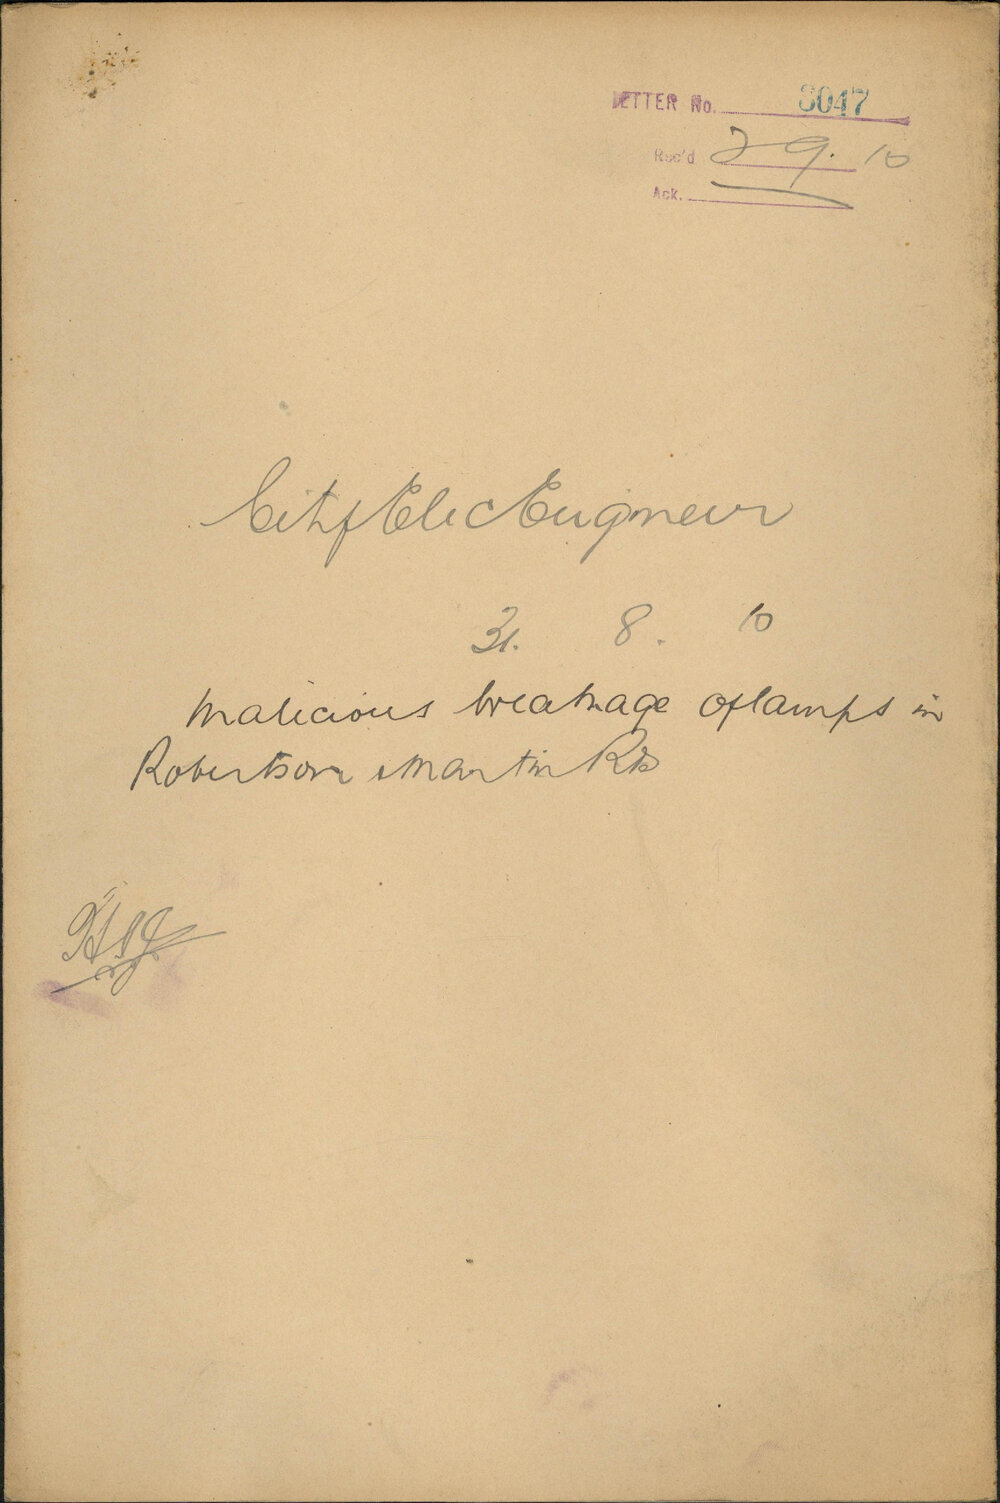 LETTER No. 3047
Rec'd 2 9. 10
Ack.
City Elec Engineer
31. 8. 10
Malicious breakage of lamps in
Robertson & Martin Rds